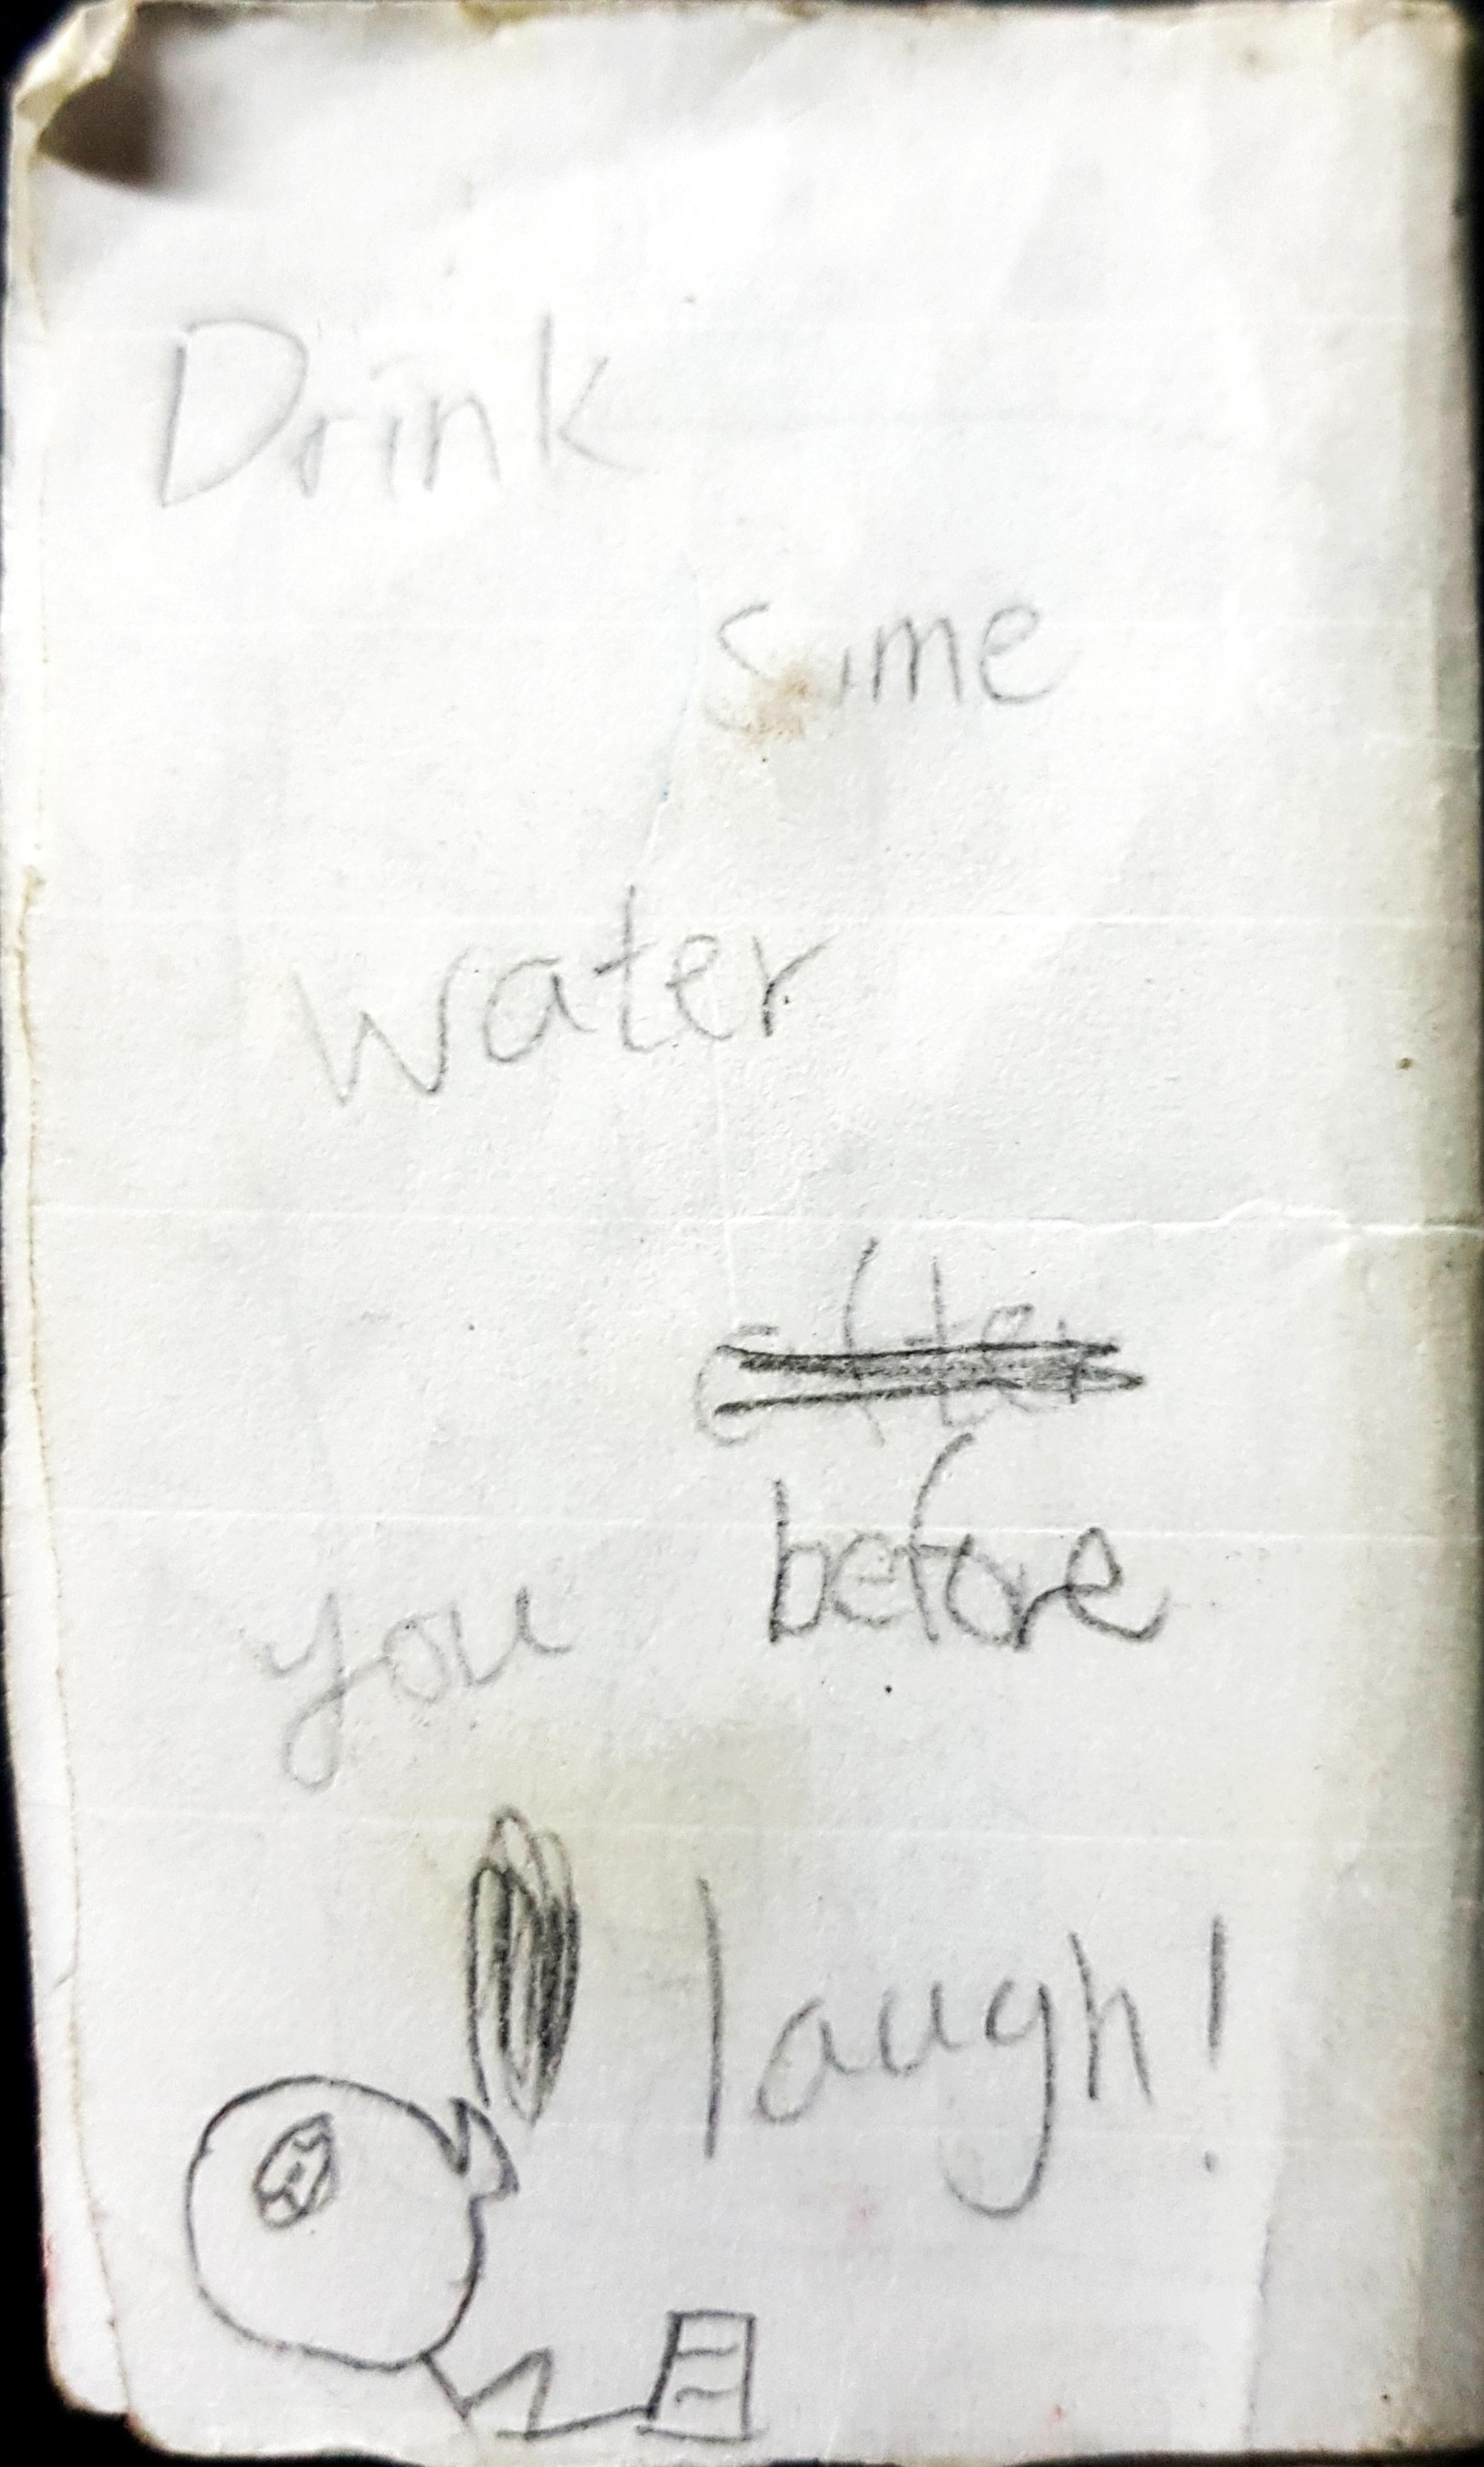 Drink
some
water
after
before
you
laugh!